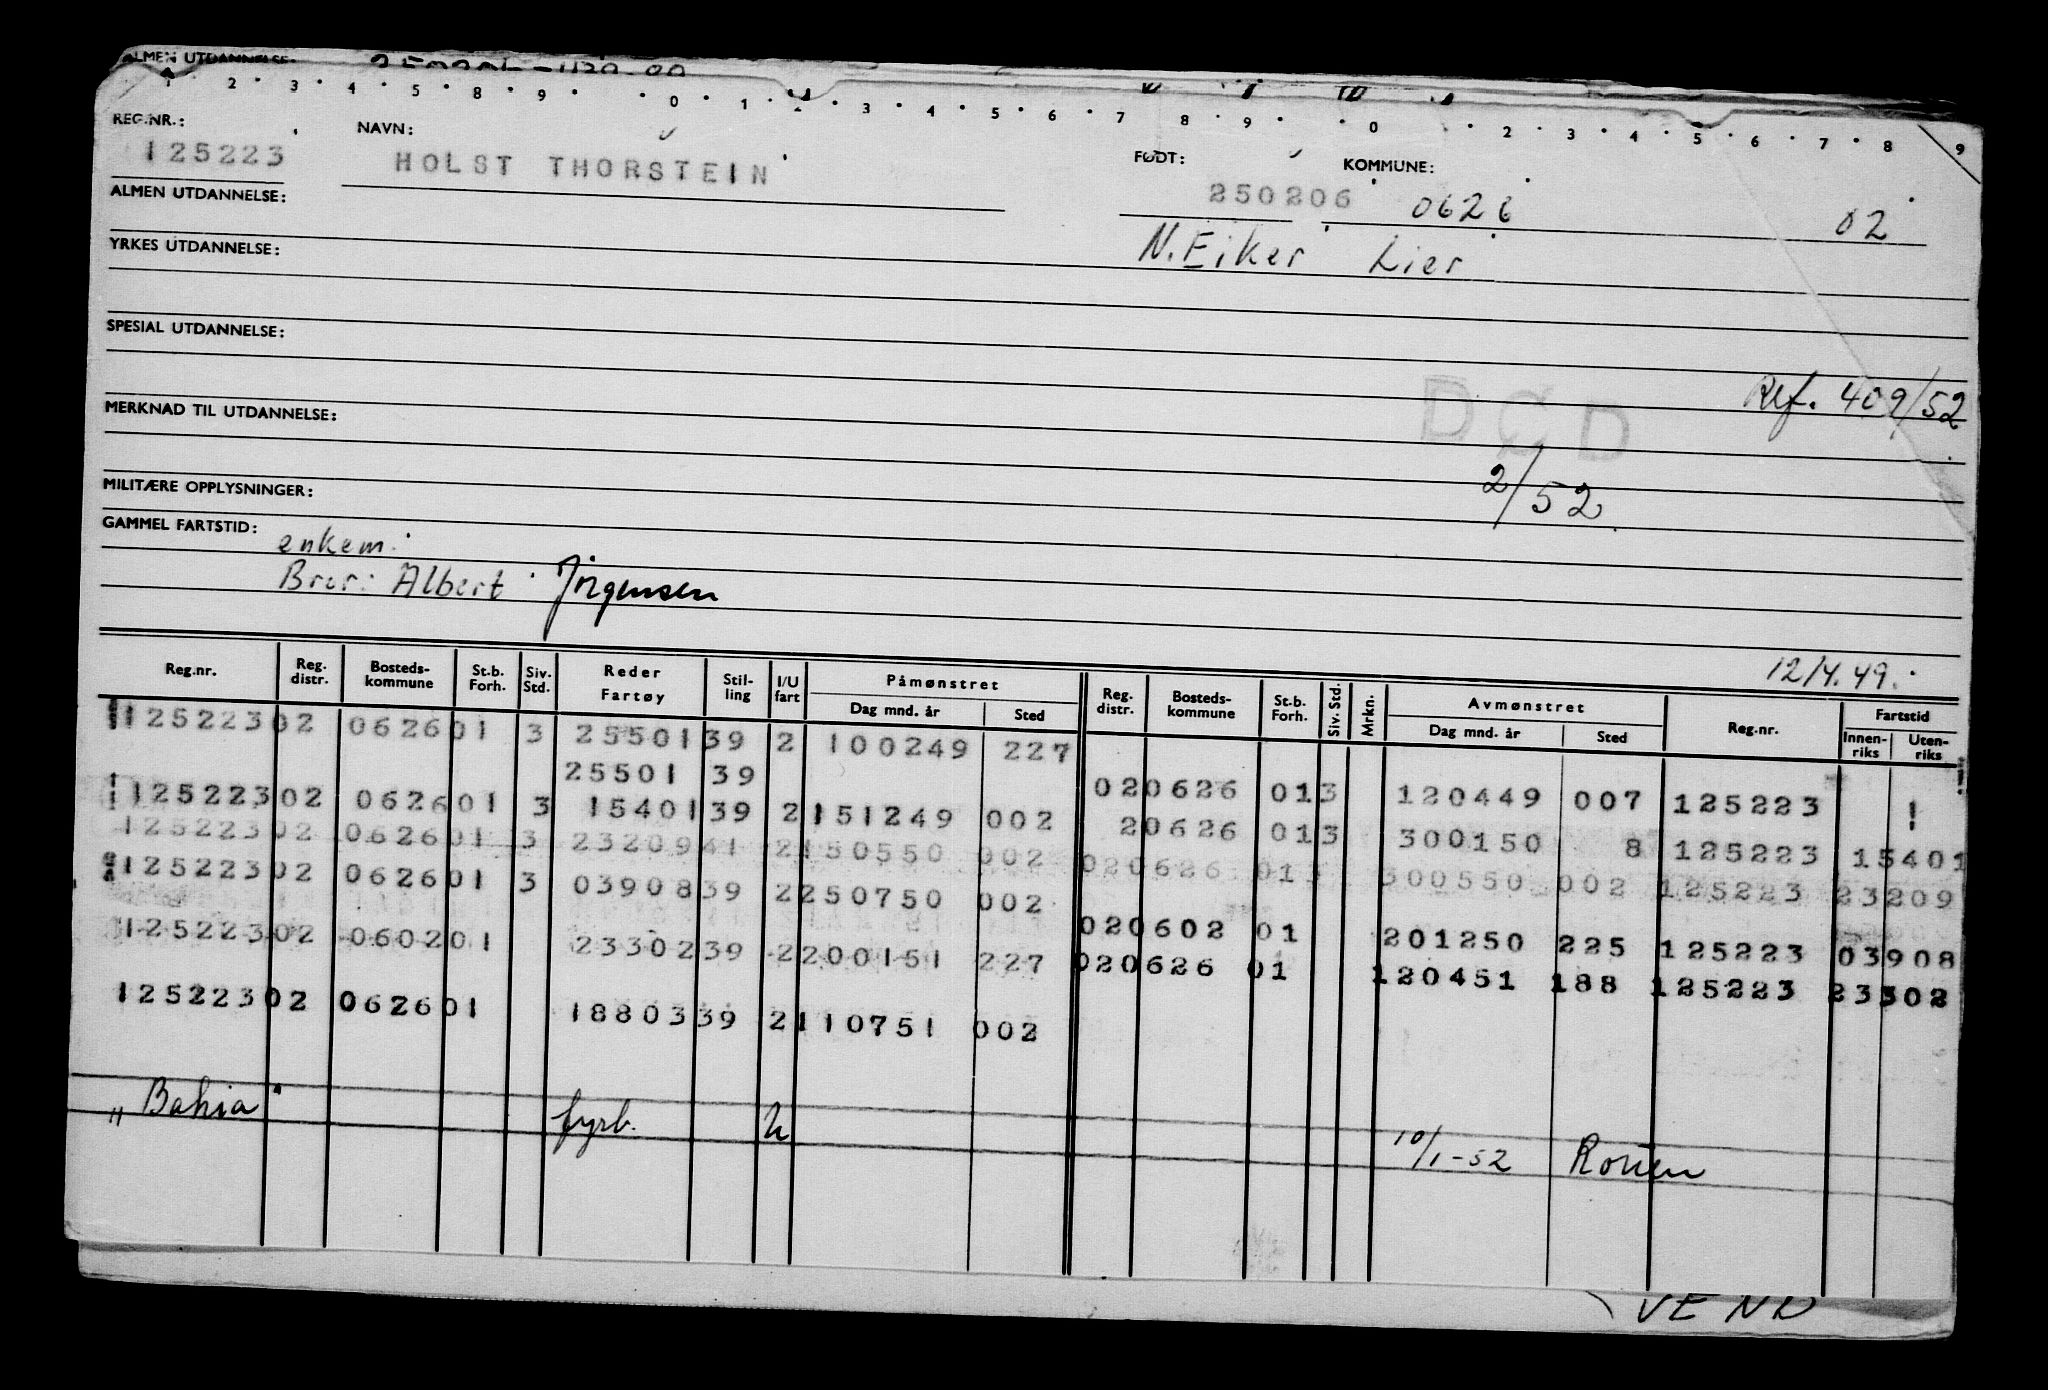 ALMEN UTDANNELSE:
1 2 3 4 5 8 9 0 1 2 3 4 5 6 7 8 9 0 2 3 4 5 6 7 8 9
REG.NR.: NAVN: FØDT: KOMMUNE:
125223 HOLST THORSTEIN 250206 0626 02
ALMEN UTDANNELSE: N. Eiker Lier
YRKES UTDANNELSE:
SPESIAL UTDANNELSE:
Ref. 409/52
MERKNAD TIL UTDANNELSE: DØD
2/52.
MILITÆRE OPPLYSNINGER:
GAMMEL FARTSTID:
enkem.
Bror: Albert Jörgensen
12/4.49.
Reg.nr. Reg. distr. Bosteds-kommune St.b. Forh. Siv. Std. Reder Fartøy Stil-ling I/U fart Påmønstret Dag mnd. år Sted Reg. distr. Bosteds-kommune St.b. Forh. Siv. Std. Mrkn. Avmønstret Dag mnd. år Sted Reg.nr. Fartstid Innen-riks Uten-riks
125223 02 0626 01 3 25501 39 2 100249 227
25501 39 02 0626 01 3 120449 007 125223
125223 02 0626 01 3 15401 39 2 151249 002 2 0626 01 3 300150 8 125223 15401
125223 02 0626 01 3 23209 41 2 150550 002 02 0626 01 300550 002 125223 23209
125223 02 0626 01 3 03908 39 2 250750 002 02 0602 01 201250 225 125223 03908
125223 02 0602 01 23302 39 2 200151 227 02 0626 01 120451 188 125223 23302
125223 02 0626 01 18803 39 2 110751 002
"Bahia" fyrb. U 10/1-52 Rouen
VEND